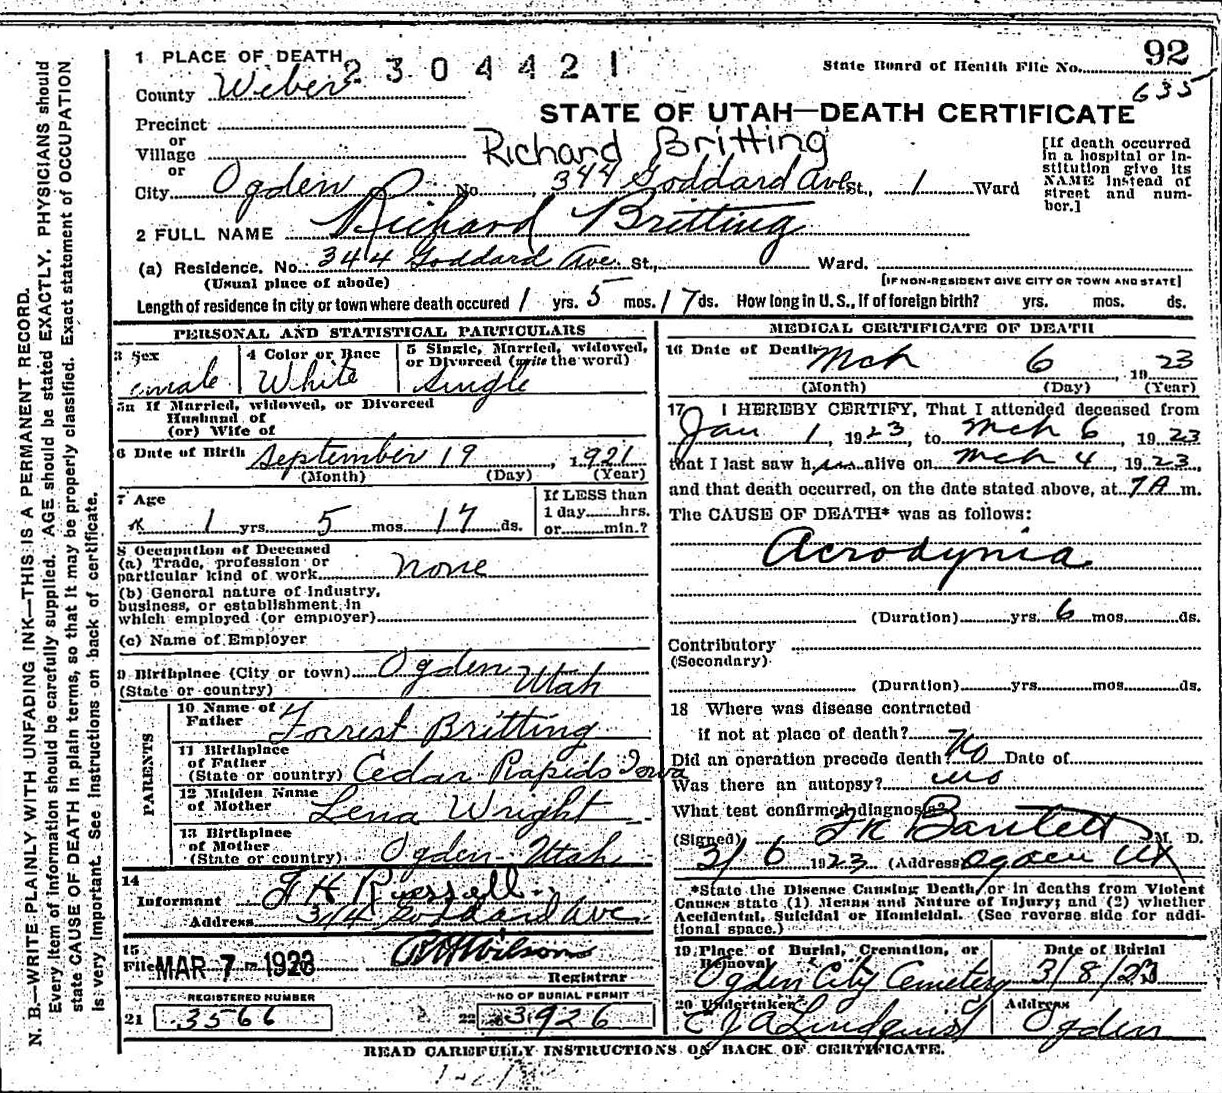 N. B.—WRITE PLAINLY WITH UNFADING INK—THIS IS A PERMANENT RECORD.
Every item of information should be carefully supplied. AGE should be stated EXACTLY. PHYSICIANS should
state CAUSE OF DEATH in plain terms, so that it may be properly classified. Exact statement of OCCUPATION
is very important. See instructions on back of certificate.
1 PLACE OF DEATH
2304421
State Board of Health File No. 92
635
County Weber
STATE OF UTAH—DEATH CERTIFICATE
Precinct
or
Village
or
Richard Britting
City Ogden No. 344 Goddard Ave St., 1 Ward
[If death occurred
in a hospital or in-
stitution give its
NAME instead of
street and num-
ber.]
2 FULL NAME Richard Britting
(a) Residence. No. 344 Goddard Ave. St., Ward.
(Usual place of abode)
[IF NON-RESIDENT GIVE CITY OR TOWN AND STATE]
Length of residence in city or town where death occured 1 yrs. 5 mos. 17 ds. How long in U. S., if of foreign birth? yrs. mos. ds.
PERSONAL AND STATISTICAL PARTICULARS
3 Sex
male
4 Color or Race
White
5 Single, Married, widowed,
or Divorced (write the word)
Single
5a If Married, widowed, or Divorced
Husband of
(or) Wife of
6 Date of Birth September 19, 1921
(Month) (Day) (Year)
7 Age
1 yrs. 5 mos. 17 ds.
If LESS than
1 day hrs.
or min.?
8 Occupation of Deceased
(a) Trade, profession or
particular kind of work none
(b) General nature of Industry,
business, or establishment in
which employed (or employer)
(c) Name of Employer
9 Birthplace (City or town) Ogden
(State or country) Utah
PARENTS
10 Name of
Father Forrest Britting
11 Birthplace
of Father
(State or country) Cedar Rapids Iowa
12 Maiden Name
of Mother Lena Wright
13 Birthplace
of Mother
(State or country) Ogden Utah
14
Informant F H Russell
Address 344 Goddard Ave
15
Filed MAR 7 - 1923
Wilson
Registrar
REGISTERED NUMBER
21 3566
NO OF BURIAL PERMIT
22 3926
MEDICAL CERTIFICATE OF DEATH
16 Date of Death Mch 6, 1923
(Month) (Day) (Year)
17 I HEREBY CERTIFY, That I attended deceased from
Jan 1, 1923, to Mch 6, 1923
that I last saw him alive on Mch 4, 1923,
and that death occurred, on the date stated above, at 7A m.
The CAUSE OF DEATH* was as follows:
Acrodynia
(Duration) yrs. 6 mos. ds.
Contributory
(Secondary)
(Duration) yrs. mos. ds.
18 Where was disease contracted
if not at place of death?
Did an operation precede death? No Date of
Was there an autopsy? no
What test confirmed diagnosis?
(Signed) Bartlett M. D.
3/6 1923 (Address) Ogden Ut
*State the Disease Causing Death, or in deaths from Violent
Causes state (1) Means and Nature of Injury; and (2) whether
Accidental, Suicidal or Homicidal. (See reverse side for addi-
tional space.)
19 Place of Burial, Cremation, or
Removal
Ogden City Cemetery
Date of Burial
3/8/23
20 Undertaker
C J A Lindquist
Address
Ogden
READ CAREFULLY INSTRUCTIONS ON BACK OF CERTIFICATE.